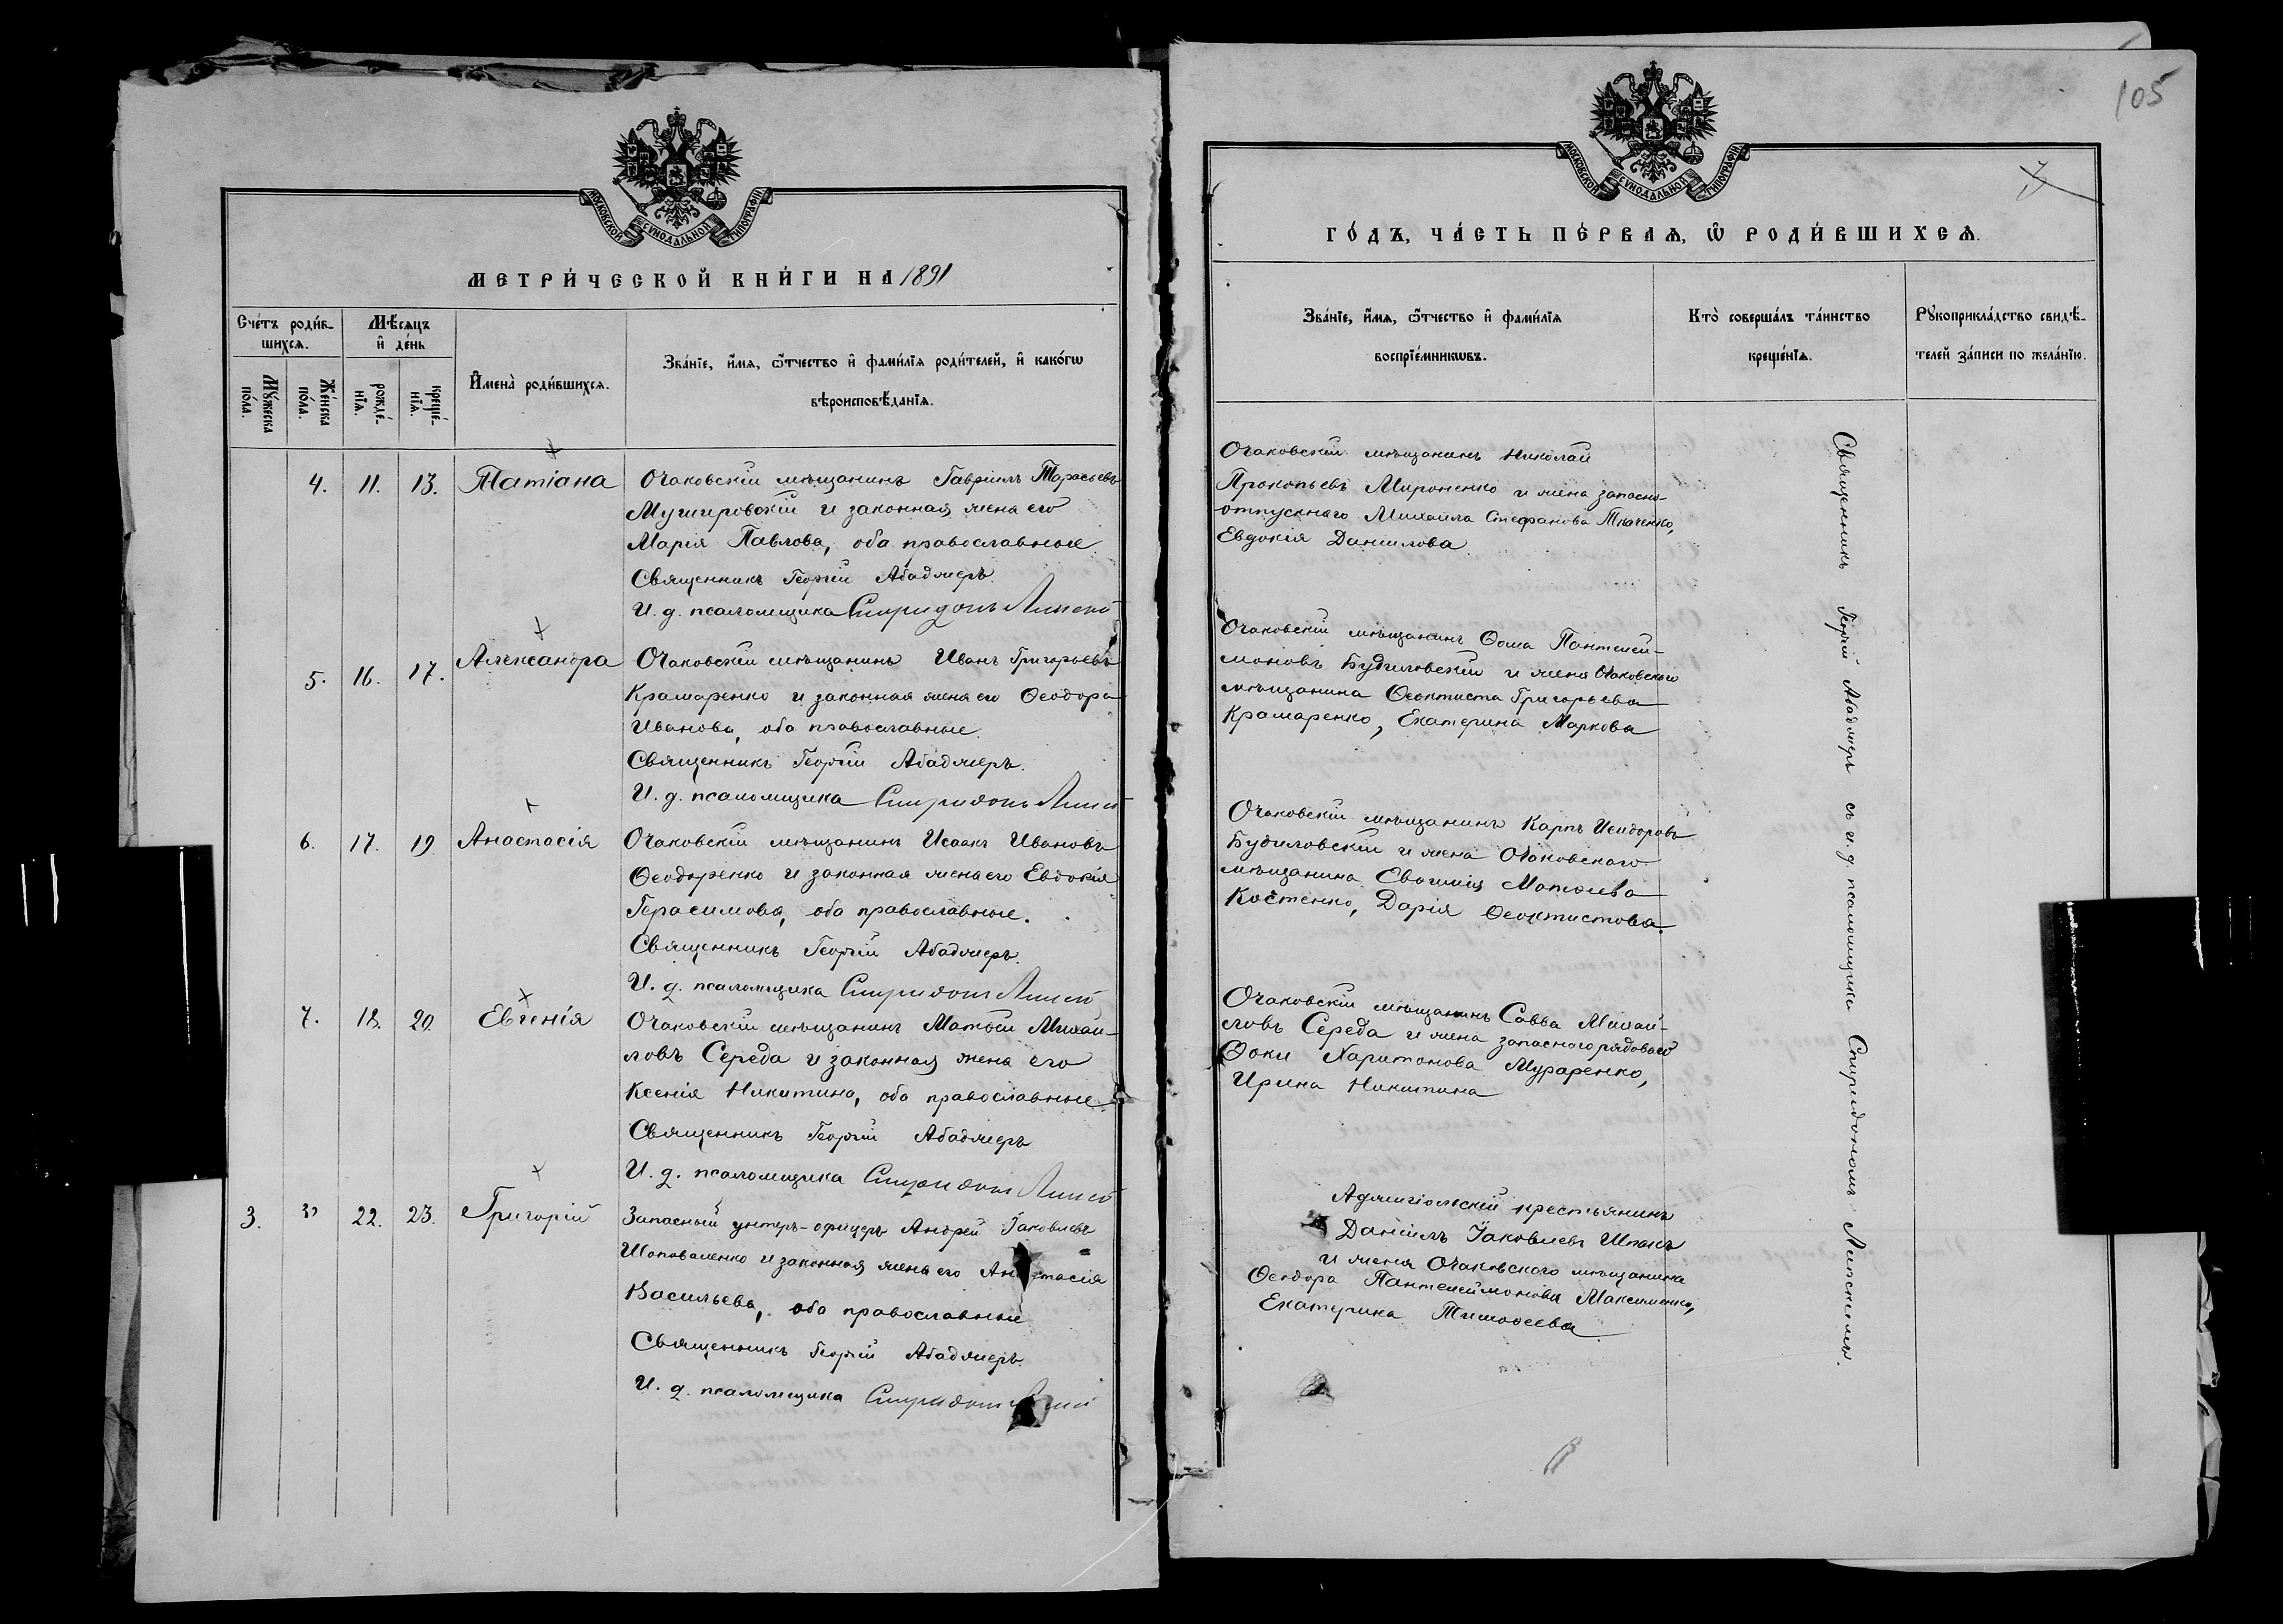 МОСКОВСКОЙ СѴНОДАЛЬНОЙ ТИПОГРАФІИ
МЕТРИ́ЧЕСКОЙ КНИ́ГИ НА 1891
Сче́тъ роди́в-
шихсѧ.
Мѣ́сѧцъ
и҆ де́нь
Мꙋ́жеска
по́ла.
Же́нска
по́ла.
рожде́-
нїѧ.
креще́-
нїѧ.
И҆мена̀ роди́вшихсѧ.
Зва́нїе, и҆́мѧ, ѻ҆́тчество и҆ фами́лїѧ роди́телей, и҆ како́гѡ
вѣроисповѣ́данїѧ.
4. 11. 13. Татіана
Очаковскій мѣщанинъ Гавріилъ Тарасьевъ
Мушировскій и законная жена его
Марія Павлова, оба православные.
Священникъ Георгій Абаджеръ.
И. д. псаломщика Спиридонъ
5. 16. 17. Александра
Очаковскій мѣщанинъ Иванъ Григорьевъ
Крамаренко и законная жена его Ѳеодора
Иванова, оба православные.
Священникъ Георгій Абаджеръ.
И. д. псаломщика Спиридонъ
6. 17. 19 Анастасія
Очаковскій мѣщанинъ Исаакъ Ивановъ
Ѳеодоренко и законная жена его Евдокія
Герасимова, оба православные.
Священникъ Георгій Абаджеръ.
И. д. псаломщика Спиридонъ
7. 18. 20. Евгенія
Очаковскій мѣщанинъ Матѳей Михаи-
ловъ Середа и законная жена его
Ксенія Никитина, оба православные.
Священникъ Георгій Абаджеръ
И. д. псаломщика Спиридонъ
3. " 22. 23. Григорій
Запасный унтеръ-офицеръ Андрей Іаковлевъ
Шаповаленко и законная жена его Анастасія
Васильева, оба православные
Священникъ Георгій Абаджеръ.
И. д. псаломщика Спиридонъ
105
МОСКОВСКОЙ СѴНОДАЛЬНОЙ ТИПОГРАФІИ
ГО́ДЪ, ЧА́СТЬ ПЕ́РВАѦ, Ѡ҆ РОДИ́ВШИХСѦ.
Зва́нїе, и҆́мѧ, ѻ҆́тчество и҆ фами́лїѧ
воспрїе́мникѡвъ.
Кто̀ соверша́лъ та́инство
креще́нїѧ.
Рꙋкоприкла́дство свидѣ́-
телей за́писи по жела́нїю.
Очаковскій мѣщанинъ Николай
Прокопьевъ Мироненко и жена запасно-
отпускнаго Михаила Стефанова Ткаченко,
Евдокія Даніилова.
Очаковскій мѣщанинъ Ѳома Пантелей-
моновъ Будиловскій и жена Очаковскаго
мѣщанина Ѳеоктиста Григорьева
Крамаренко, Екатерина Маркова
Очаковскій мѣщанинъ Карпъ Исидоровъ
Будиловскій и жена Очаковскаго
мѣщанина Евѳимія Матѳеева
Костенко, Дарія Ѳеоктистова.
Очаковскій мѣщанинъ Савва Михаи-
ловъ Середа и жена запаснаго рядоваго
Ѳоки Харитонова Мураренко,
Ирина Никитина
Аджигіольскій крестьянинъ
Даніилъ Іаковлевъ Шпакъ
и жена Очаковскаго мѣщанина
Ѳеодора Пантелеймонова Максименко,
Екатерина Тимоѳеева
Священникъ Георгій Абаджеръ съ и. д. псаломщика Спиридономъ Липскимъ.